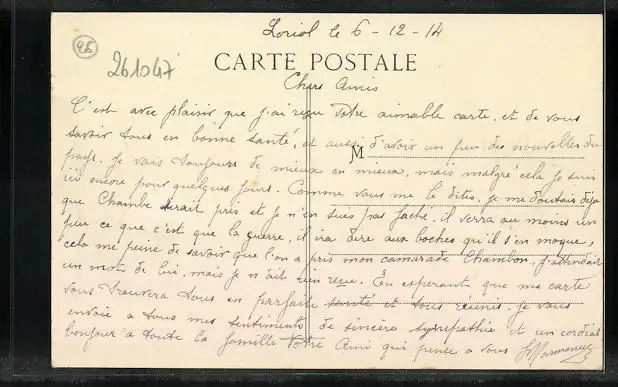 Loriol le 6-12-14
26
261047
CARTE POSTALE
Chers Amis
C'est avec plaisir que j'ai reçu votre aimable carte, et de vous
savoir tous en bonne santé, et aussi d'avoir un peu des nouvelles du
M
pays. Je vais toujours de mieux en mieux, mais malgré cela je suis
ici encore pour quelques jours. Comme vous me le dites, je me doutais déjà
que Chambe serait pris et je n'en suis pas faché, il verra au moins un
peu ce que c'est que la guerre, il ira dire aux boches qu'il s'en moque,
cela me peine de savoir que l'on a pris mon camarade Chambon, j'attendait
un mot de lui, mais je n'ait rien reçue. En esperante que ma carte
vous trouvera tous en parfaite santé et tous réunis. Je vous
envoie a tous mes sentiments de sincère sympathie et un cordial
bonjour a toute la famille Votre Ami qui pense a vous